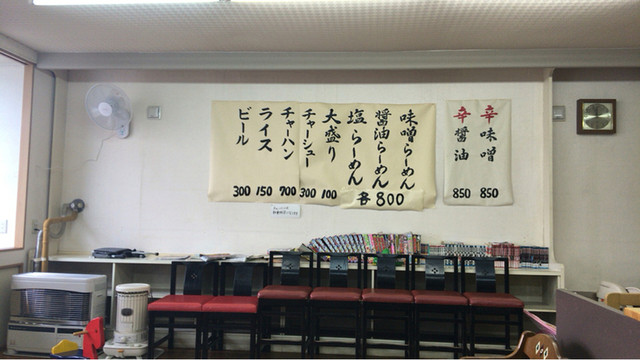 辛味噌 850
辛醤油 850
味噌らーめん
醤油らーめん
塩らーめん
各800
大盛り 100
チャーシュー 300
チャーハン 900
ライス 150
ビール 300